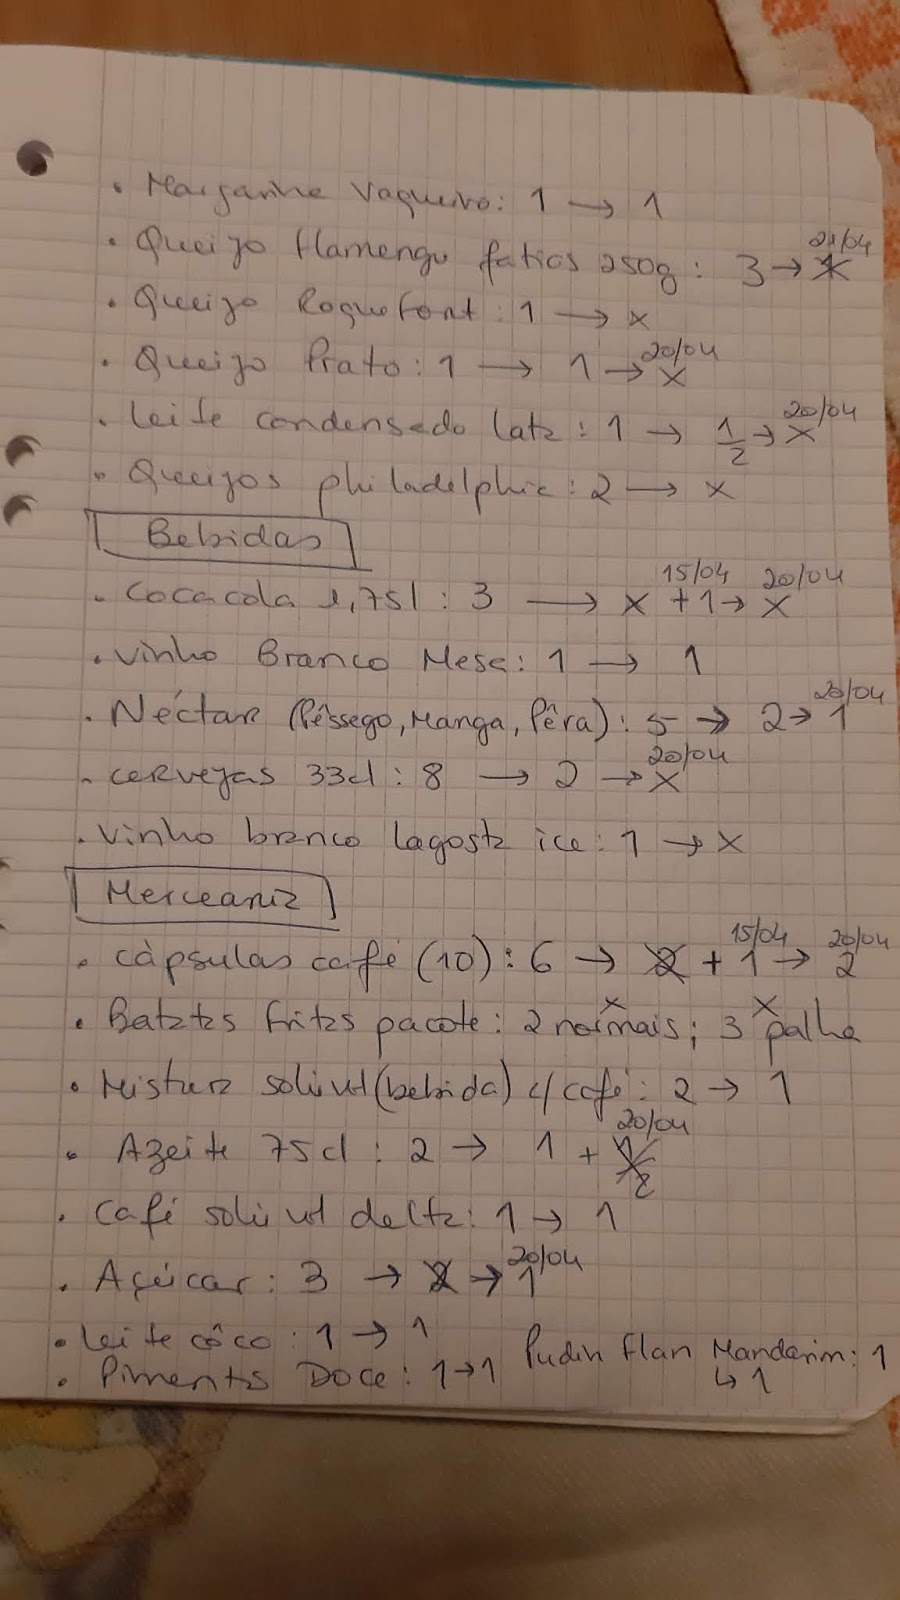 . Margarina Vaqueiro: 1 → 1
. Queijo flamengo fatias 250g: 3 → x 21/04
. Queijo Roquefort: 1 → x
. Queijo Prato: 1 → 1 → x 20/04
. Leite condensado lata: 1 → 1/2 → x 20/04
. Queijos philadelphia: 2 → x
Bebidas
. Coca cola 1,75l: 3 → x +1 15/04 → x 20/04
. Vinho Branco Mesa: 1 → 1
. Néctar (Pêssego, Manga, Pêra): 5 → 2 → 1 20/04
. cervejas 33cl: 8 → 2 → x 20/04
. Vinho branco lagosta ice: 1 → x
Mercearia
. càpsulas café (10): 6 → 2 + 1 15/04 → 2 20/04
. Batatas fritas pacote: 2 normais x; 3 palha x
. Mistura solúvel (bebida) c/ café: 2 → 1
. Azeite 75cl: 2 → 1 + 1/2 20/04
. Café solúvel delta: 1 → 1
. Açúcar: 3 → 2 → 1 20/04
. Leite côco: 1 → 1
Pudin flan Mandarim: 1
↳ 1
. Pimenta Doce: 1 → 1